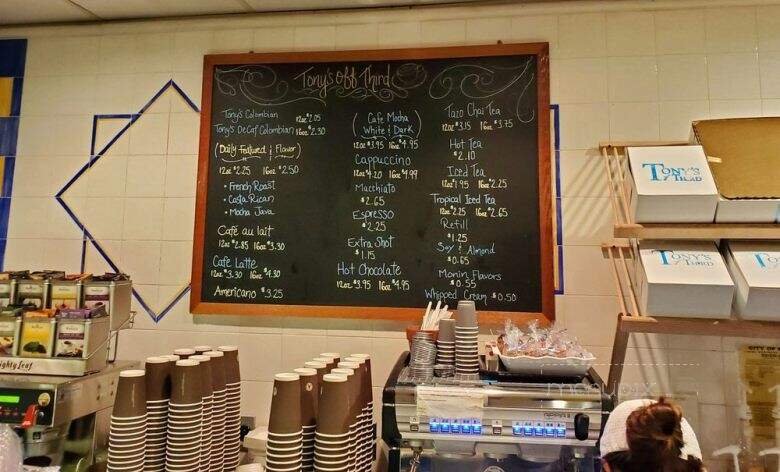 Tony's Off Third
Tony's Colombian 12oz $2.05
Tony's Decaf Colombian 16oz $2.30
(Daily Featured & Flavor)
12oz $2.25 16oz $2.50
• French Roast
• Costa Rican
• Mocha Java
Café au lait
12oz $2.85 16oz $3.30
Cafe Latte
12oz $3.30 16oz $4.30
Americano $3.25
(Cafe Mocha
White & Dark)
12oz $3.95 16oz $4.95
Cappuccino
12oz $4.20 16oz $4.99
Macchiato
$2.65
Espresso
$2.25
Extra Shot
$1.15
Hot Chocolate
12oz $3.95 16oz $4.95
Tazo Chai Tea
12oz $3.15 16oz $3.75
Hot Tea
$2.10
Iced Tea
12oz $1.95 16oz $2.25
Tropical Iced Tea
12oz $2.25 16oz $2.65
Refill
$1.25
Soy & Almond
$0.65
Monin Flavors
$0.55
Whipped Cream $0.50
TONY'S
THIRD
TONY'S
THIRD
TONY'S
Mighty Leaf
CITY OF